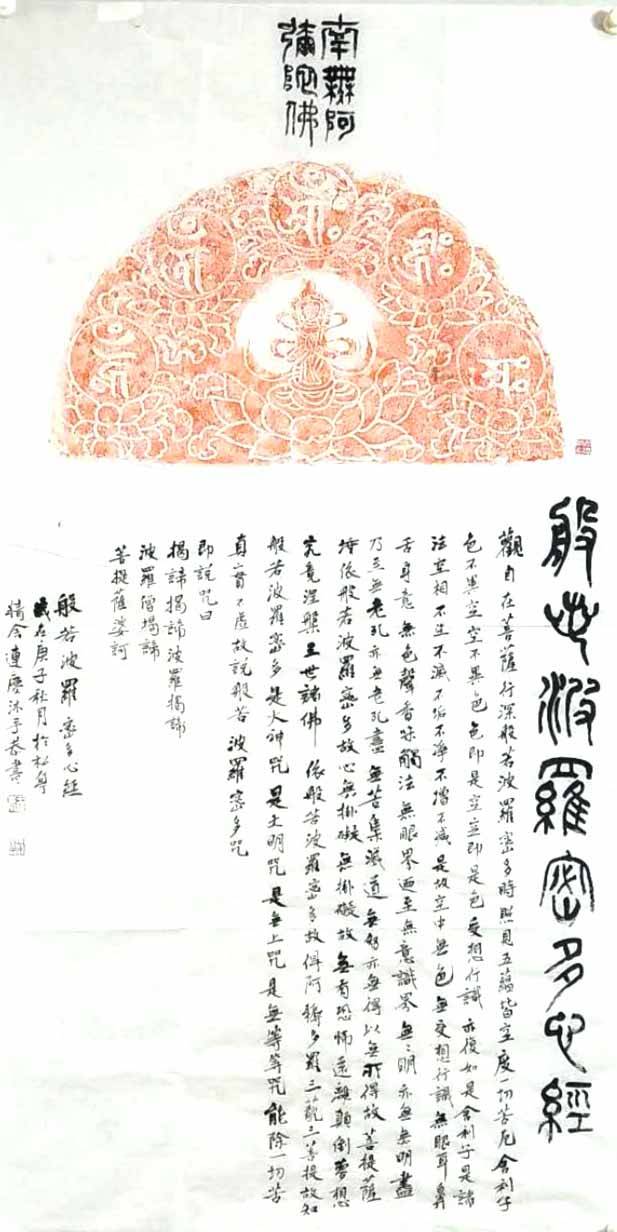 南無阿
彌陀佛
般若波羅密多心經
觀自在菩薩行深般若波羅密多時照見五蘊皆空度一切苦厄舍利子
色不異空空不異色色即是空空即是色受想行識亦復如是舍利子是諸
法空相不生不滅不垢不淨不增不減是故空中無色無受想行識無眼耳鼻
舌身意無色聲香味觸法無眼界迺至無意識界無無明亦無無明盡
乃至無老死亦無老死盡無苦集滅道無智亦無得以無所得故菩提薩
埵依般若波羅密多故心無掛礙無掛礙故無有恐怖遠離顛倒夢想
究竟涅槃三世諸佛依般若波羅密多故得阿耨多羅三藐三菩提故知
般若波羅密多是大神咒是大明咒是無上咒是無等等咒能除一切苦
真實不虛故說般若波羅密多咒
即說咒曰
揭諦揭諦波羅揭諦
波羅僧揭諦
菩提薩婆訶
般若波羅密多心經
歲在庚子秋月於
連慶沐手恭書